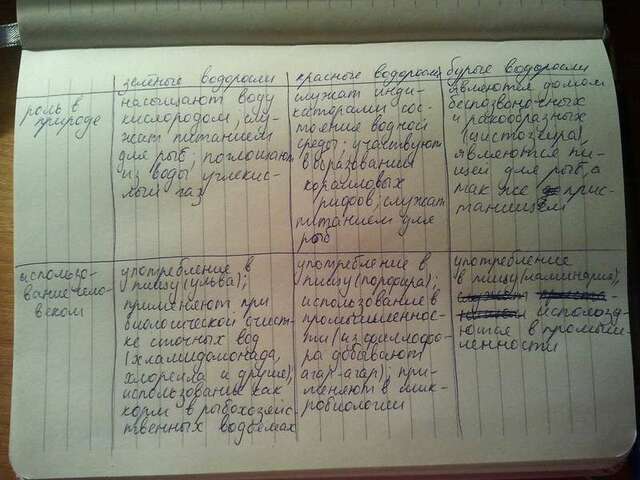 зелёные водоросли
красные водоросли
бурые водоросли
роль в
природе
насыщают воду
кислородом; слу-
жат питанием
для рыб; поглощают
из воды углекис-
лый газ
служат инди-
каторами сос-
тояния водной
среды; участвуют
в образовании
коралловых
рифов; служат
питанием для
рыб
являются домом
беспозвоночных
и ракообразных
(цистозира),
являются пи-
щей для рыб, а
так же прис-
танищем
использо-
вание чело-
веком
употребление в
пищу (ульва);
применяют при
биологической очист-
ке сточных вод
(хламидомонада,
хлорелла и другие);
использование как
корм в рыбохозяйс-
твенных водоёмах
употребление в
пищу (порфира);
использование в
промышленнос-
ти (из филлофо-
ра добывают
агар-агар); при-
меняют в мик-
робиологии
употребление
в пищу (ламинария),
использу-
ются в промыш-
ленности